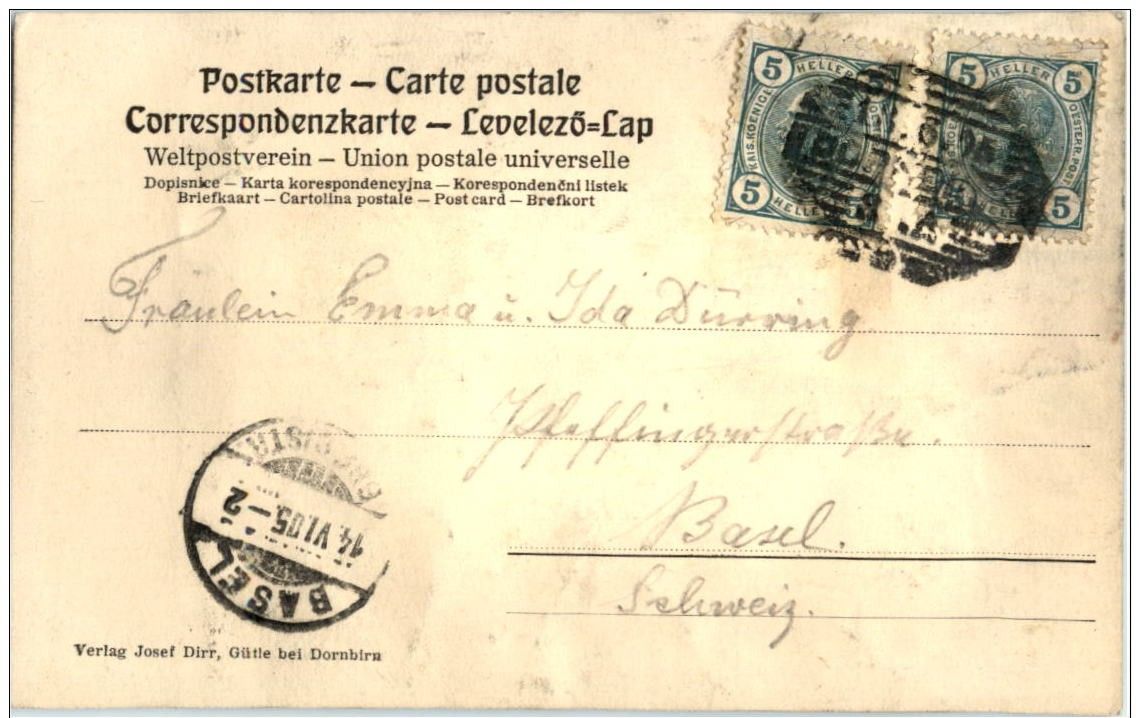 Postkarte — Carte postale
Correspondenzkarte — Levelező=Lap
Weltpostverein — Union postale universelle
Dopisnice — Karta korespondencyjna — Korespondenční listek
Briefkaart — Cartolina postale — Post card — Brefkort
5 HELLER 5
KAIS. KOENIGL.
5 HELLER
5 HELLER 5
OESTERR. POST
HELLER 5
Fräulein Emma u. Ida Dürring
Pfeffingerstraße.
Basel.
Schweiz.
14.VI.05.—2
BASEL
Verlag Josef Dirr, Gütle bei Dornbirn